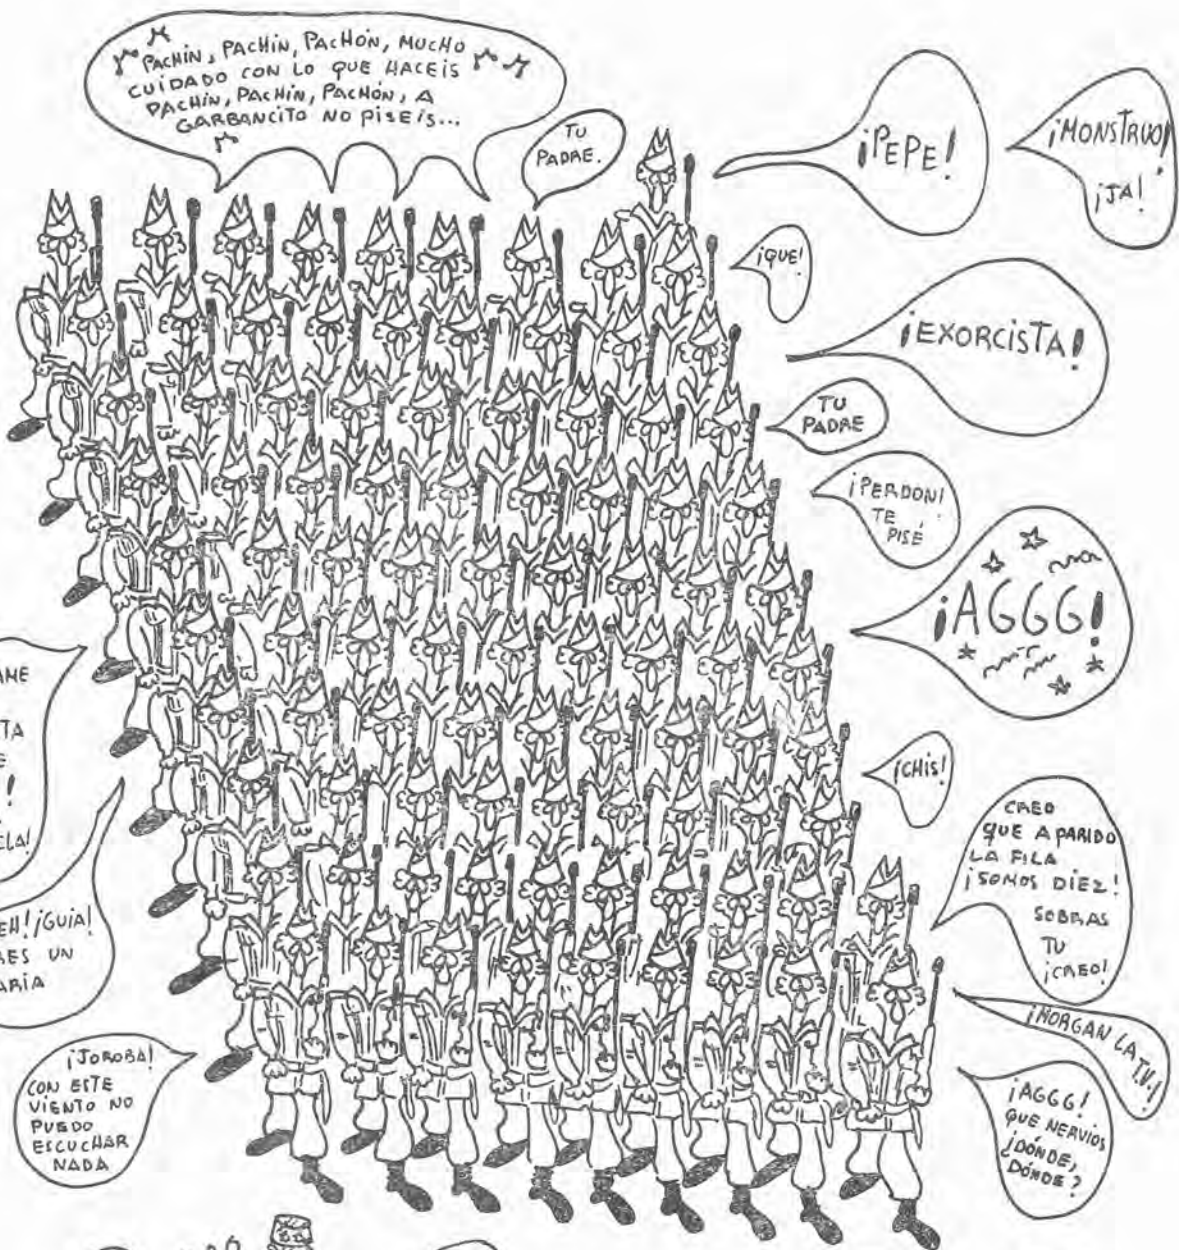 PACHÍN, PACHÍN, PACHÓN, MUCHO
CUIDADO CON LO QUE HACEIS
PACHÍN, PACHÍN, PACHÓN, A
GARBANCITO NO PISEIS...
TU
PADRE.
¡PEPE!
¡MONSTRUO!
¡JA!
¡QUE!
¡EXORCISTA!
TU
PADRE
¡PERDON!
TE
PISÉ
¡AGGG!
¡CHIS!
CREO
QUE A PARIDO
LA FILA
¡SOMOS DIEZ!
SOBRAS
TU
¡CREO!
¡MORGAN LA T.V.!
¡AGGG!
QUE NERVIOS
¿DÓNDE,
DÓNDE?
EH! ¡GUIA!
UN
¡JOROBA!
CON ESTE
VIENTO NO
PUEDO
ESCUCHAR
NADA